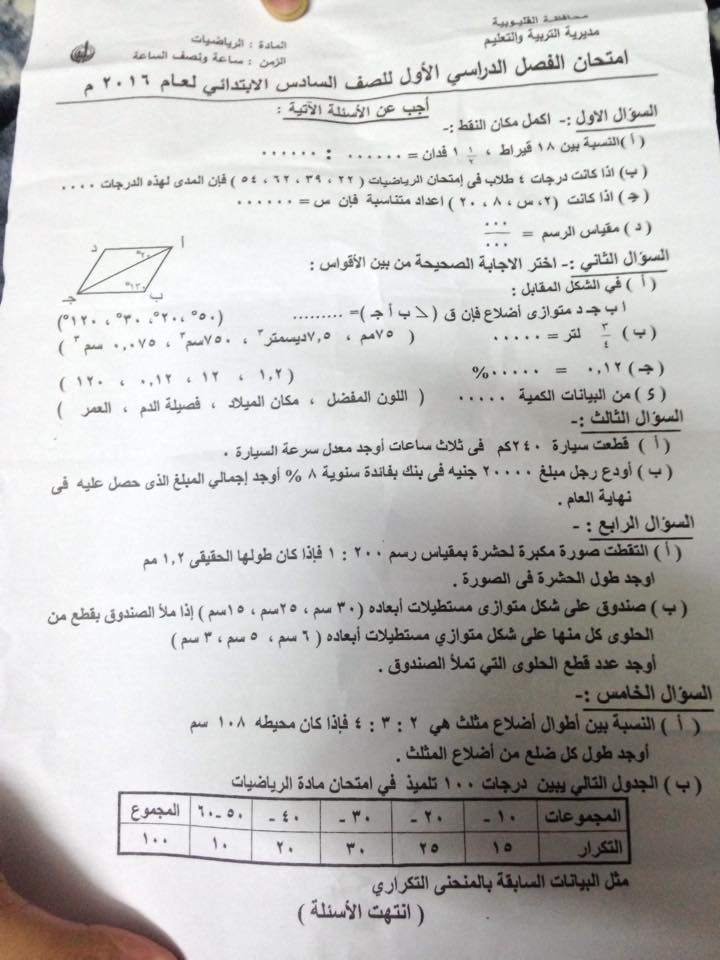 محافظة القليوبية
مديرية التربية والتعليم
المادة : الرياضيات
الزمن : ساعة ونصف الساعة
امتحان الفصل الدراسي الأول للصف السادس الابتدائي لعام ٢٠١٦ م
أجب عن الأسئلة الآتية :
السؤال الاول :- اكمل مكان النقط :-
( أ ) النسبة بين ١٨ قيراط ، ١ ١/٢ فدان = ...... : ......
( ب ) اذا كانت درجات ٤ طلاب فى إمتحان الرياضيات ( ٢٢ ، ٣٩ ، ٦٢ ، ٥٤ ) فإن المدى لهذه الدرجات ....
( جـ ) اذا كانت ( ٢، س ، ٨ ، ٢٠ ) اعداد متناسبة فإن س = ......
( د ) مقياس الرسم = .../...
السؤال الثاني :- اختر الاجابة الصحيحة من بين الأقواس :
( أ ) في الشكل المقابل :
أ ب جـ د متوازى أضلاع فإن ق ( ب أ جـ )= ......... (٥٠° ،٢٠°، ٣٠° ، ١٢٠°)
د أ ٢٠° ١٣٠° جـ ب
( ب ) ٣/٤ لتر = ..... ( ٧٥مم ، ٧,٥ديسمتر٣ ، ٧٥٠سم٣ ، ٠,٠٧٥ سم٣ )
( جـ ) ٠,١٢ = .....% ( ١,٢ ، ١٢ ، ٠,١٢ ، ١٢٠ )
( ٤ ) من البيانات الكمية ..... ( اللون المفضل ، مكان الميلاد ، فصيلة الدم ، العمر )
السؤال الثالث :-
( أ ) قطعت سيارة ٢٤٠كم فى ثلاث ساعات أوجد معدل سرعة السيارة .
( ب ) أودع رجل مبلغ ٢٠٠٠٠ جنيه فى بنك بفائدة سنوية ٨ % أوجد إجمالي المبلغ الذى حصل عليه فى
نهاية العام .
السؤال الرابع : -
( أ ) التقطت صورة مكبرة لحشرة بمقياس رسم ٢٠٠ : ١ فإذا كان طولها الحقيقى ١,٢ مم
اوجد طول الحشرة فى الصورة .
( ب ) صندوق على شكل متوازى مستطيلات أبعاده ( ٣٠ سم ، ٢٥سم ، ١٥سم ) إذا ملأ الصندوق بقطع من
الحلوى كل منها على شكل متوازي مستطيلات أبعاده ( ٦ سم ، ٥ سم ، ٣ سم )
أوجد عدد قطع الحلوى التي تملأ الصندوق .
السؤال الخامس :-
( أ ) النسبة بين أطوال أضلاع مثلث هي ٢ : ٣ : ٤ فإذا كان محيطه ١٠٨ سم
أوجد طول كل ضلع من أضلاع المثلث .
( ب ) الجدول التالي يبين درجات ١٠٠ تلميذ في امتحان مادة الرياضيات
المجموعات ١٠ - ٢٠ - ٣٠ - ٤٠ - ٥٠ -٦٠ المجموع
التكرار ١٥ ٢٥ ٣٠ ٢٠ ١٠ ١٠٠
مثل البيانات السابقة بالمنحنى التكراري
( انتهت الأسئلة )